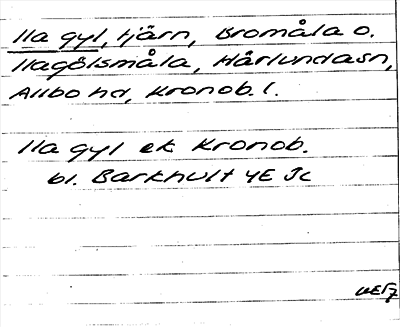 Illa gyl, tjärn, Bromåla o.
Illagölsmåla, Härlundasn,
Allbo hd, Kronob. l.
Illa gyl ek Kronob.
bl. Barkhult 4E Jc